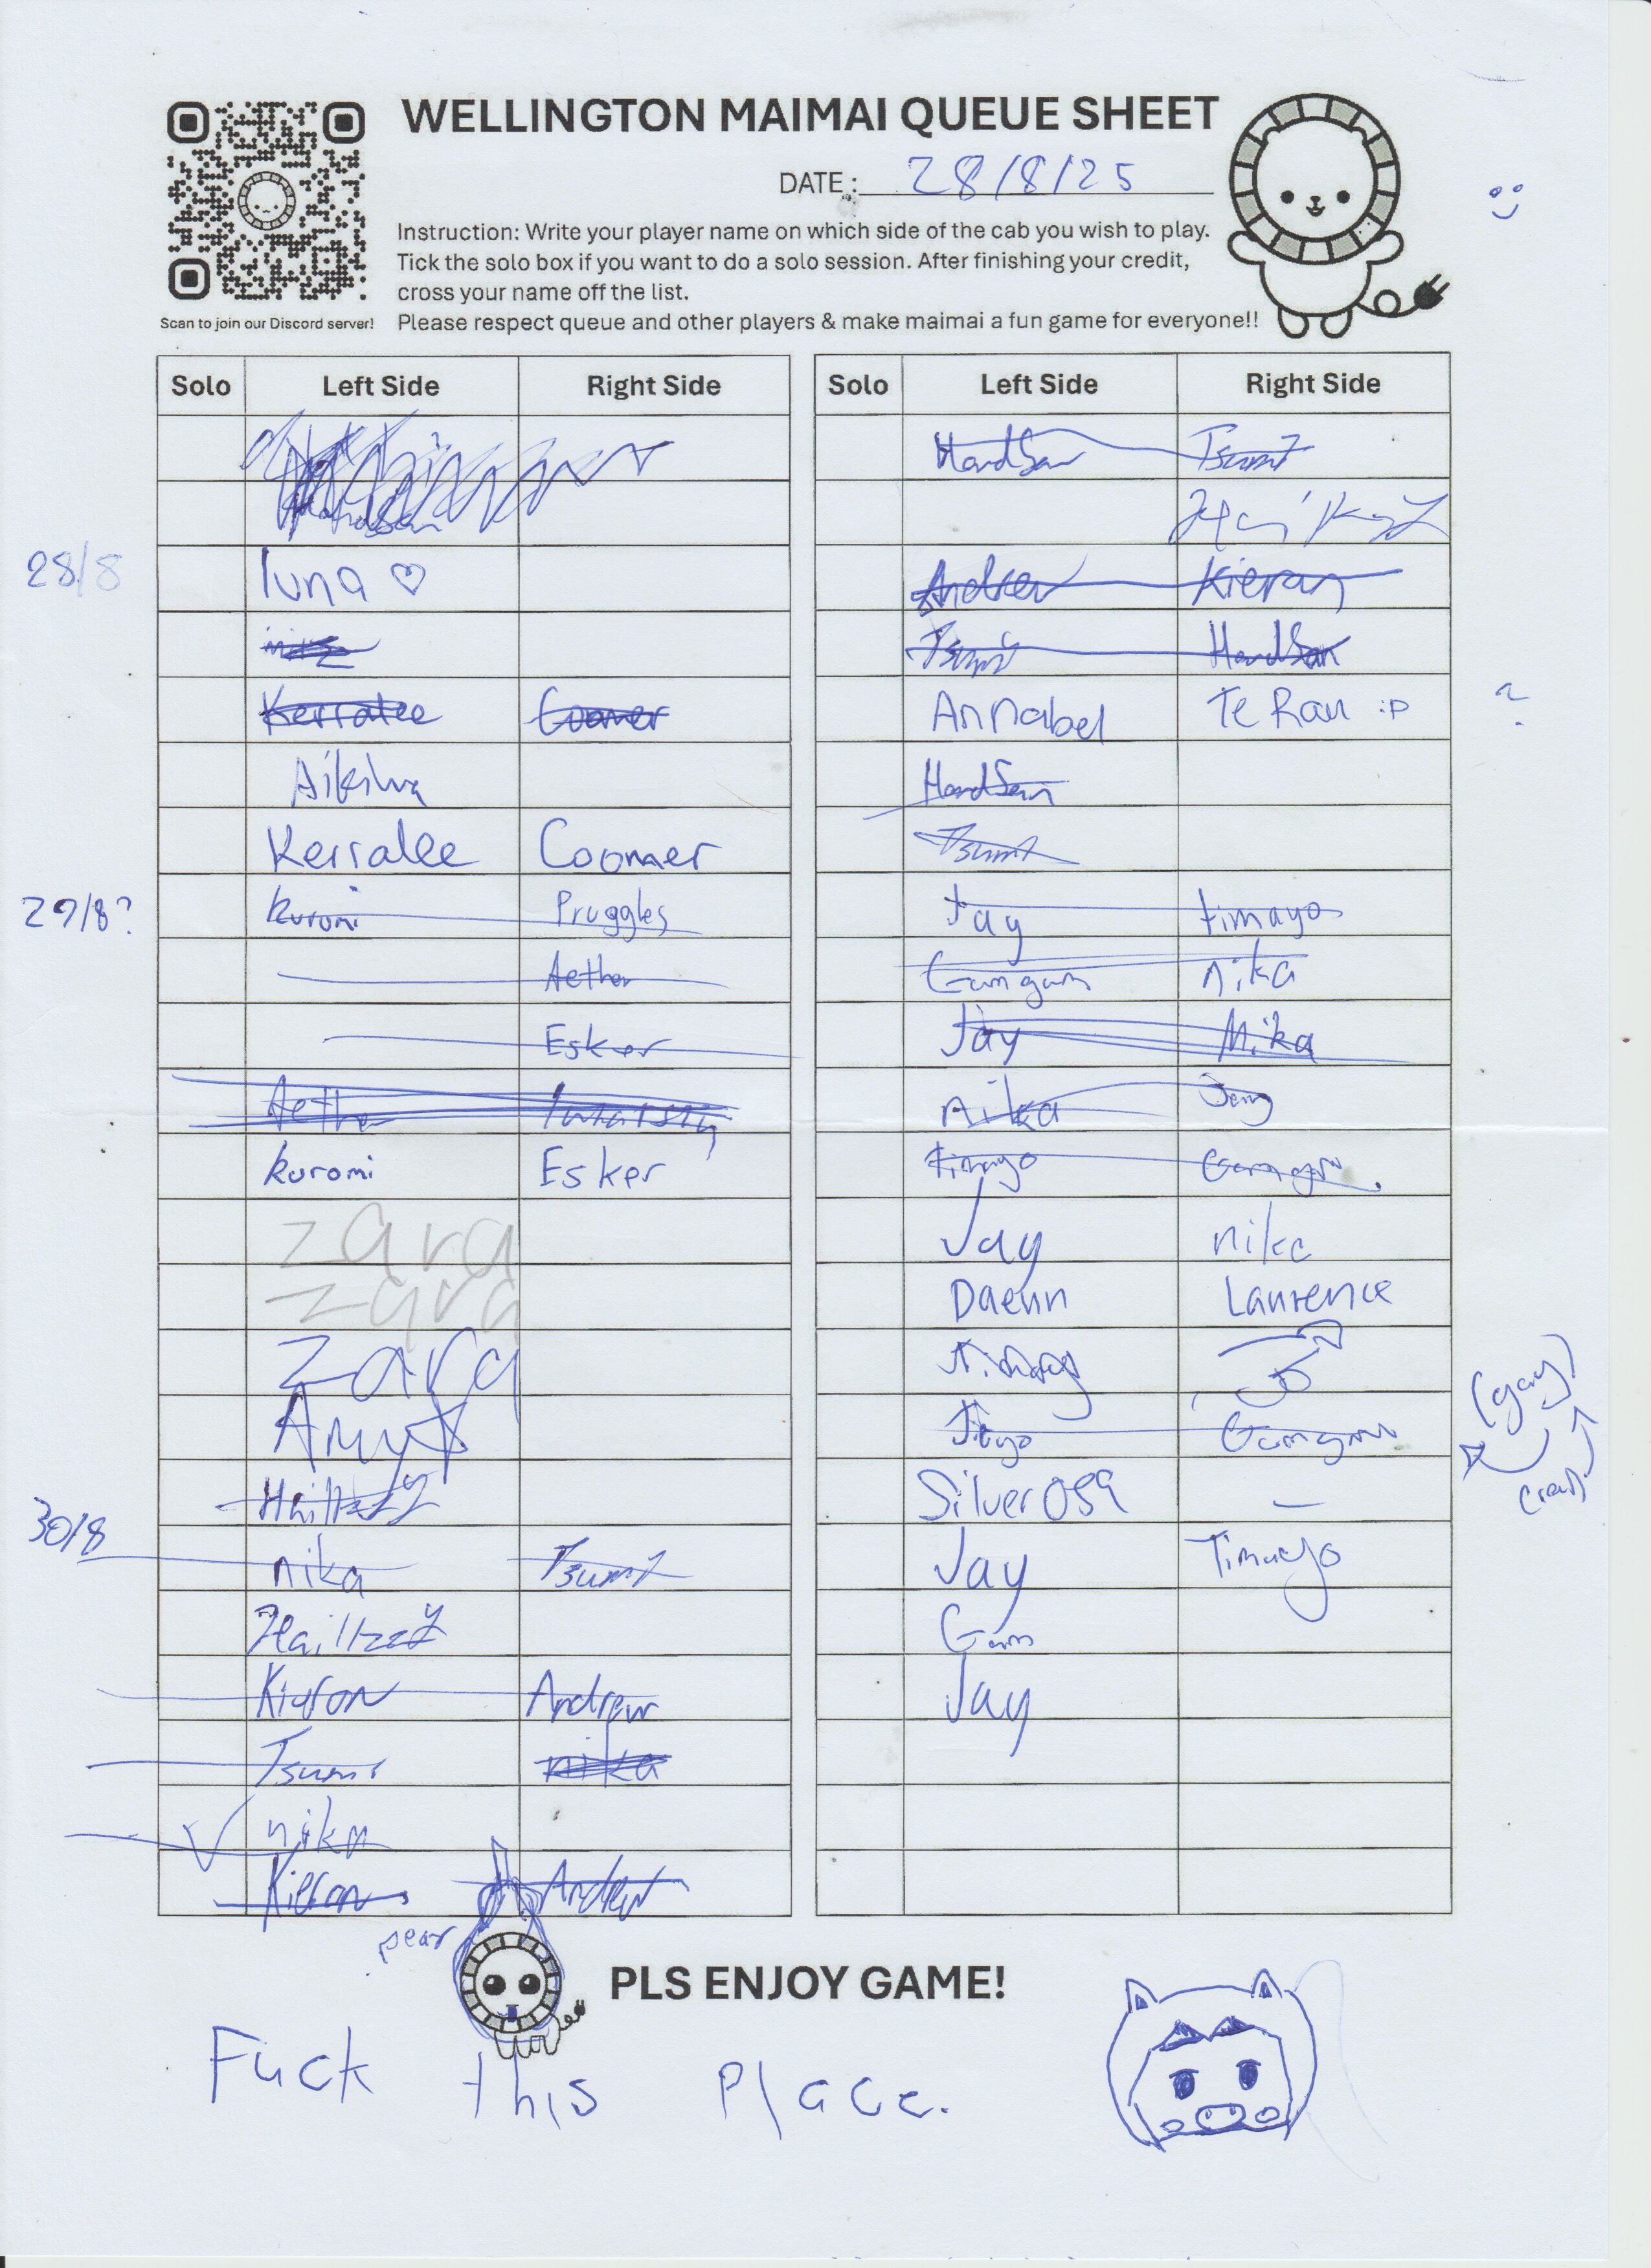 WELLINGTON MAIMAI QUEUE SHEET
DATE: 28/8/25
Instruction: Write your player name on which side of the cab you wish to play.
Tick the solo box if you want to do a solo session. After finishing your credit,
cross your name off the list.
Please respect queue and other players & make maimai a fun game for everyone!!
Scan to join our Discord server!
Solo Left Side Right Side
28/8 luna ♡
Kerralee Coomer
Kerralee Coomer
29/8? kuromi Pruggles
Aether
Esker
Aether
kuromi Esker
zara
zara
zara
Amy
30/8
nika Tsumi
Hailtzzy
Kieron Andrew
Tsumi nika
nika
Kieron Andrew
Solo Left Side Right Side
HandSan Tsumi
Andrew Kieran
Tsumi HandSan
Annabel Te Rau :P
?
HandSan
Tsumi
Jay timayo
Gumgum nika
Jay Mika
Aika Jay
timayo Gumgum
Jay nika
Daenn Laurence
(gay)
Gumgum
(read)
Silver059 —
Jay Timayo
Gum
Jay
pear
PLS ENJOY GAME!
Fuck this Place.